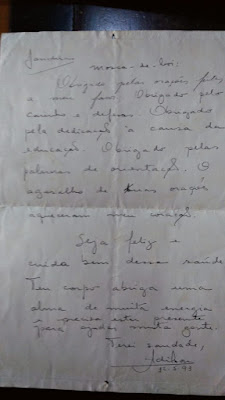 mossa-de-boi:
Obrigado pelas orações feitas
a meu favor. Obrigado pelo
carinho e defesa. Obrigado
pela dedicação à causa da
educação. Obrigado pelas
palavras de orientação. O
agasalho de tuas orações
aqueceram meu coração.
Seja feliz e
cuida bem dessa saúde
Teu corpo abriga uma
alma de muita energia
e precisa estar presente
para ajudar muita gente.
Terei saudade,